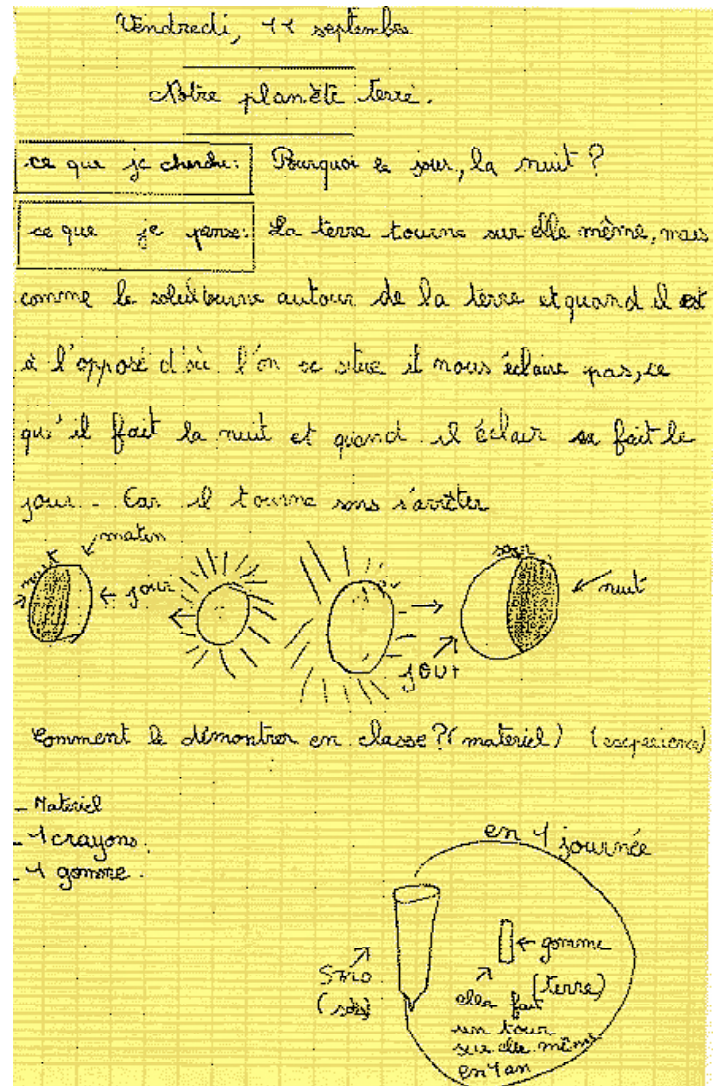 Vendredi, 11 septembre
Notre planète terre.
ce que je cherche: Pourquoi le jour, la nuit ?
ce que je pense: La terre tourne sur elle même, mais
comme le soleil tourne autour de la terre et quand il est
à l'opposé d'où l'on se situe il nous éclaire pas, ce
qu'il fait la nuit et quand il éclair sa fait le
jour - Car il tourne sans s'arrêter
matin
nuit
jour
soir
nuit
jour
Comment le démontrer en classe ? (materiel) (experience)
- Materiel
- 1 crayons.
- 1 gomme.
en 1 journée
gomme
(terre)
elle fait
un tour
sur elle même
en 1 an